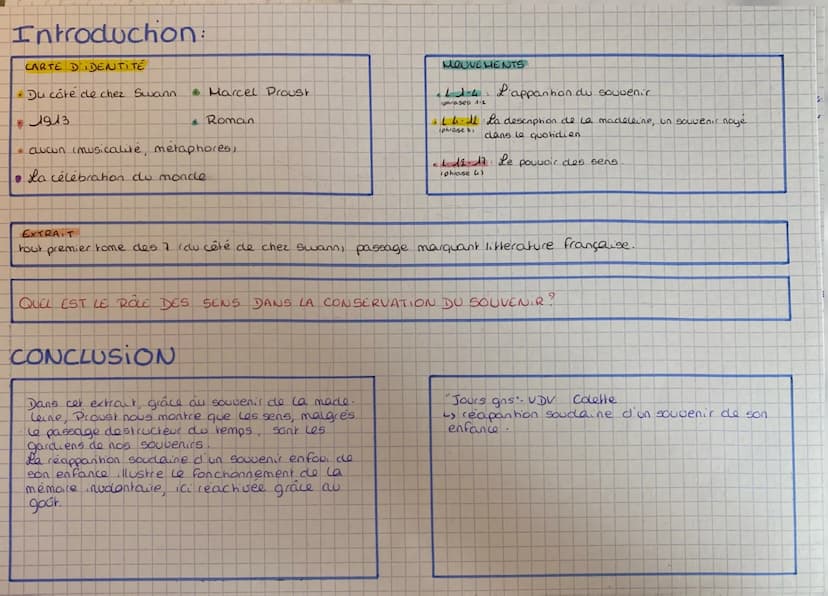 Introduction:
CARTE D'IDENTITÉ
Du côté de chez Swann
Marcel Proust
1913
Roman
aucun (musicalité, métaphores)
La célébration du monde
MOUVEMENTS
L 1-4 : L'apparition du souvenir
phrases 1-2
L 4-11 La description de la madeleine, un souvenir noyé
dans le quotidien
L 12-17 : Le pouvoir des sens.
(phrase 4)
EXTRAIT
tout premier tome des 7 (du côté de chez Swann) passage marquant litterature française.
QUEL EST LE RÔLE DES SENS DANS LA CONSERVATION DU SOUVENIR ?
CONCLUSION
Dans cet extrait, grâce au souvenir de la made-
leine, Proust nous montre que les sens, malgrés
le passage destructeur du temps, sont les
gardiens de nos souvenirs.
La réapparition soudaine d'un souvenir enfoui de
son enfance illustre le fonctionnement de la
mémoire involontaire, ici réactivée grâce au
goût.
"Jours gris" VDV Colette
↳ réapparition soudaine d'un souvenir de son
enfance.